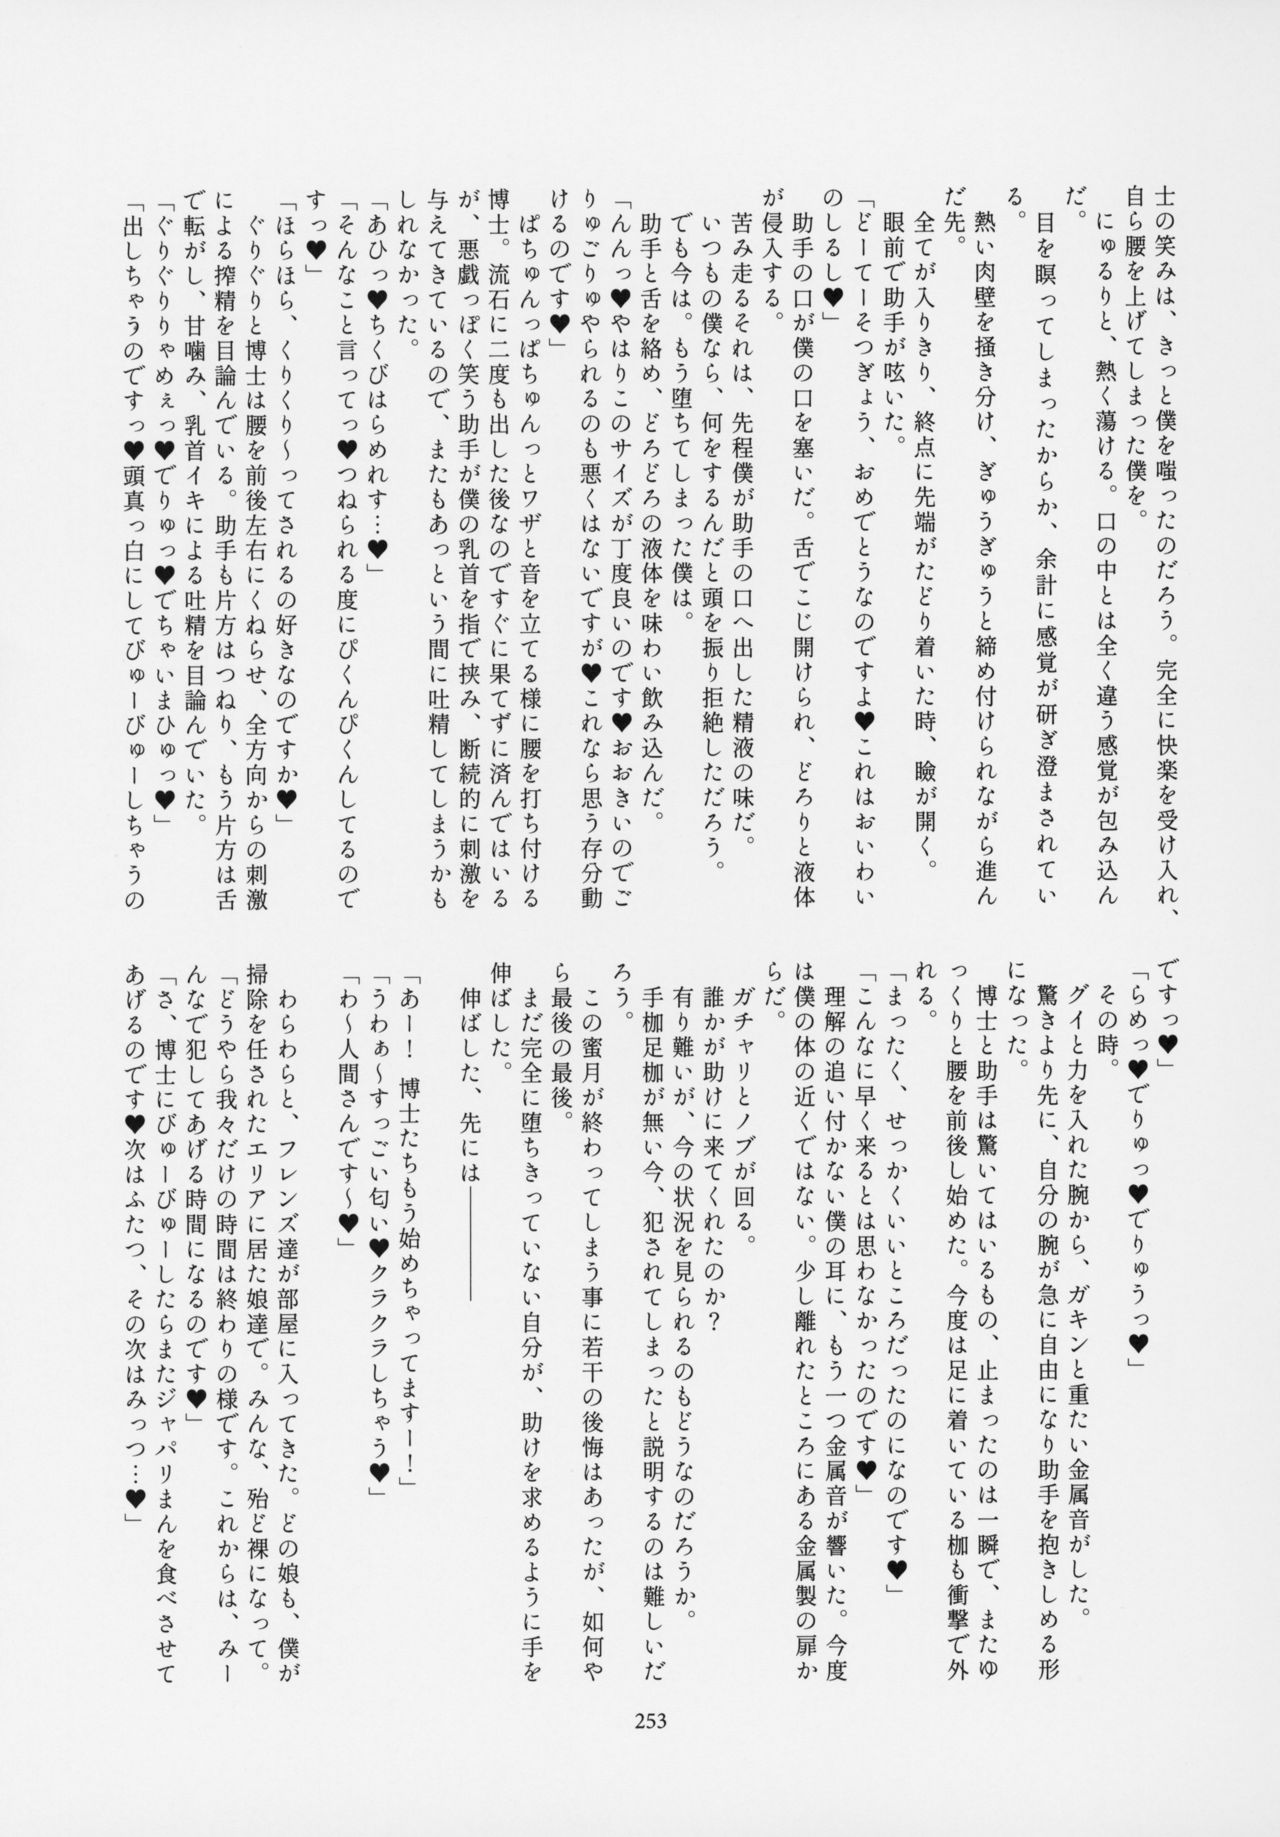 士の笑みは、きっと僕を嗤ったのだろう。完全に快楽を受け入れ、
自ら腰を上げてしまった僕を。
にゅるりと、熱く蕩ける。口の中とは全く違う感覚が包み込ん
だ。
目を瞑ってしまったからか、余計に感覚が研ぎ澄まされてい
る。
熱い肉壁を掻き分け、ぎゅうぎゅうと締め付けられながら進ん
だ先。
全てが入りきり、終点に先端がたどり着いた時、瞼が開く。
眼前で助手が呟いた。
「どーてーそつぎょう、おめでとうなのですよ♥これはおいわい
のしるし♥」
助手の口が僕の口を塞いだ。舌でこじ開けられ、どろりと液体
が侵入する。
苦み走るそれは、先程僕が助手の口へ出した精液の味だ。
いつもの僕なら、何をするんだと頭を振り拒絶しただろう。
でも今は。もう堕ちてしまった僕は。
助手と舌を絡め、どろどろの液体を味わい飲み込んだ。
「んんっ♥やはりこのサイズが丁度良いのです♥おおきいのでご
りゅごりゅやられるのも悪くはないですが♥これなら思う存分動
けるのです♥」
ぱちゅんっぱちゅんっとワザと音を立てる様に腰を打ち付ける
博士。流石に二度も出した後なのですぐに果てずに済んではいる
が、悪戯っぽく笑う助手が僕の乳首を指で挟み、断続的に刺激を
与えてきているので、またもあっという間に吐精してしまうかも
しれなかった。
「あひっ♥ちくびはらめれす…♥」
「そんなこと言ってっ♥つねられる度にぴくんぴくんしてるので
すっ♥」
「ほらほら、くりくり～ってされるの好きなのですか♥」
ぐりぐりと博士は腰を前後左右にくねらせ、全方向からの刺激
による搾精を目論んでいる。助手も片方はつねり、もう片方は舌
で転がし、甘噛み、乳首イキによる吐精を目論んでいた。
「ぐりぐりりゃめぇっ♥でりゅっ♥でちゃいまひゅっ♥」
「出しちゃうのですっ♥頭真っ白にしてびゅーびゅーしちゃうの
ですっ♥」
「らめっ♥でりゅっ♥でりゅうっ♥」
その時。
グイと力を入れた腕から、ガキンと重たい金属音がした。
驚きより先に、自分の腕が急に自由になり助手を抱きしめる形
になった。
博士と助手は驚いてはいるもの、止まったのは一瞬で、またゆ
っくりと腰を前後し始めた。今度は足に着いている枷も衝撃で外
れる。
「まったく、せっかくいいところだったのになのです♥」
「こんなに早く来るとは思わなかったのです♥」
理解の追い付かない僕の耳に、もう一つ金属音が響いた。今度
は僕の体の近くではない。少し離れたところにある金属製の扉か
らだ。
ガチャリとノブが回る。
誰かが助けに来てくれたのか？
有り難いが、今の状況を見られるのもどうなのだろうか。
手枷足枷が無い今、犯されてしまったと説明するのは難しいだ
ろう。
この蜜月が終わってしまう事に若干の後悔はあったが、如何や
ら最後の最後。
まだ完全に堕ちきっていない自分が、助けを求めるように手を
伸ばした。
伸ばした、先には――――――
「あー！　博士たちもう始めちゃってますー！」
「うわぁ～すっごい匂い♥クラクラしちゃう♥」
「わ～人間さんです～♥」
わらわらと、フレンズ達が部屋に入ってきた。どの娘も、僕が
掃除を任されたエリアに居た娘達で。みんな、殆ど裸になって。
「どうやら我々だけの時間は終わりの様です。これからは、みー
んなで犯してあげる時間になるのです♥」
「さ、博士にびゅーびゅーしたらまたジャパリまんを食べさせて
あげるのです♥次はふたつ、その次はみっつ…♥」
253